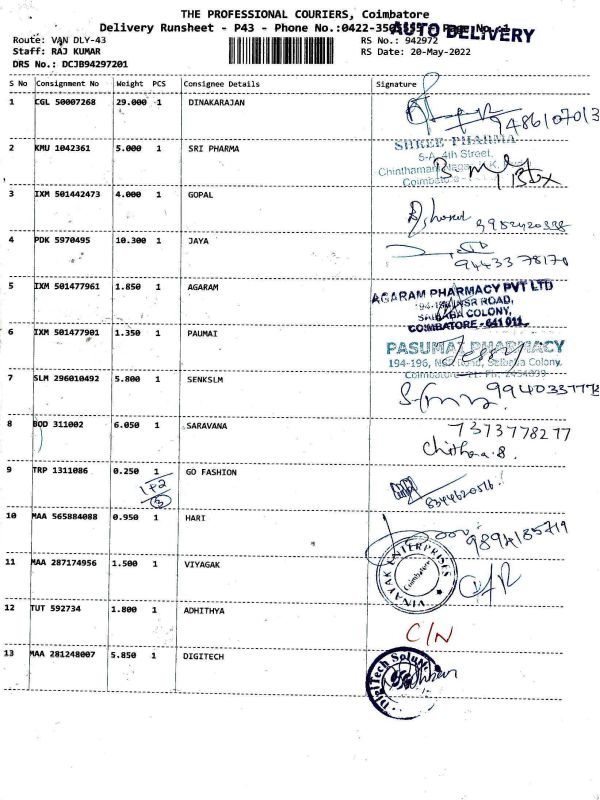 THE PROFESSIONAL COURIERS, Coimbatore
Delivery Runsheet - P43 - Phone No.:0422-350 Page No.:1
AUTO DELIVERY
Route: VAN DLY-43 RS No.: 942972
Staff: RAJ KUMAR RS Date: 20-May-2022
DRS No.: DCJB94297201
S No Consignment No Weight PCS Consignee Details Signature
1 CGL 50007268 29.000 1 DINAKARAJAN
9486107013
2 KMU 1042361 5.000 1 SRI PHARMA
SHREE PHARMA
5-A, 4th Street,
Chinthamani Nagar, K.K.
Coimbatore -
1 Box
3 IXM 501442473 4.000 1 GOPAL
4 PDK 5970495 10.300 1 JAYA
9443378170
5 IXM 501477961 1.850 1 AGARAM
AGARAM PHARMACY PVT LTD
NSR ROAD,
SAIBABA COLONY,
COIMBATORE - 641 011.
6 IXM 501477901 1.350 1 PAUMAI
PASUMAI PHARMACY
194-196, NSR Road, Saibaba Colony,
7 SLM 296010492 5.800 1 SENKSLM
8 BOD 311002 6.050 1 SARAVANA
7373778277
Chithra.S.
9 TRP 1311086 0.250 1 GO FASHION
1+2
3
8344620516
10 MAA 565884088 0.950 1 HARI
9894185719
11 MAA 287174956 1.500 1 VIYAGAK
VINAYAK ENTERPRISES
Coimbatore
12 TUT 592734 1.800 1 ADHITHYA
C/N
13 MAA 281248007 5.850 1 DIGITECH
DigiTech